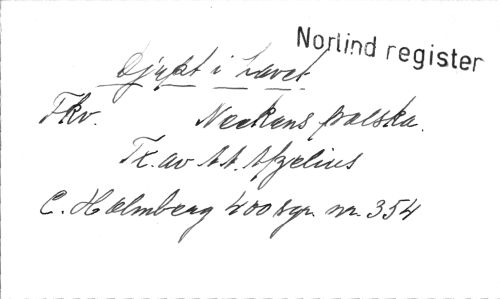 Norlind register
Djupt i havet
Fkv. Neckens polska.
Tx. av A.A. Afzelius
C. Holmberg 400 sgr. nr. 354